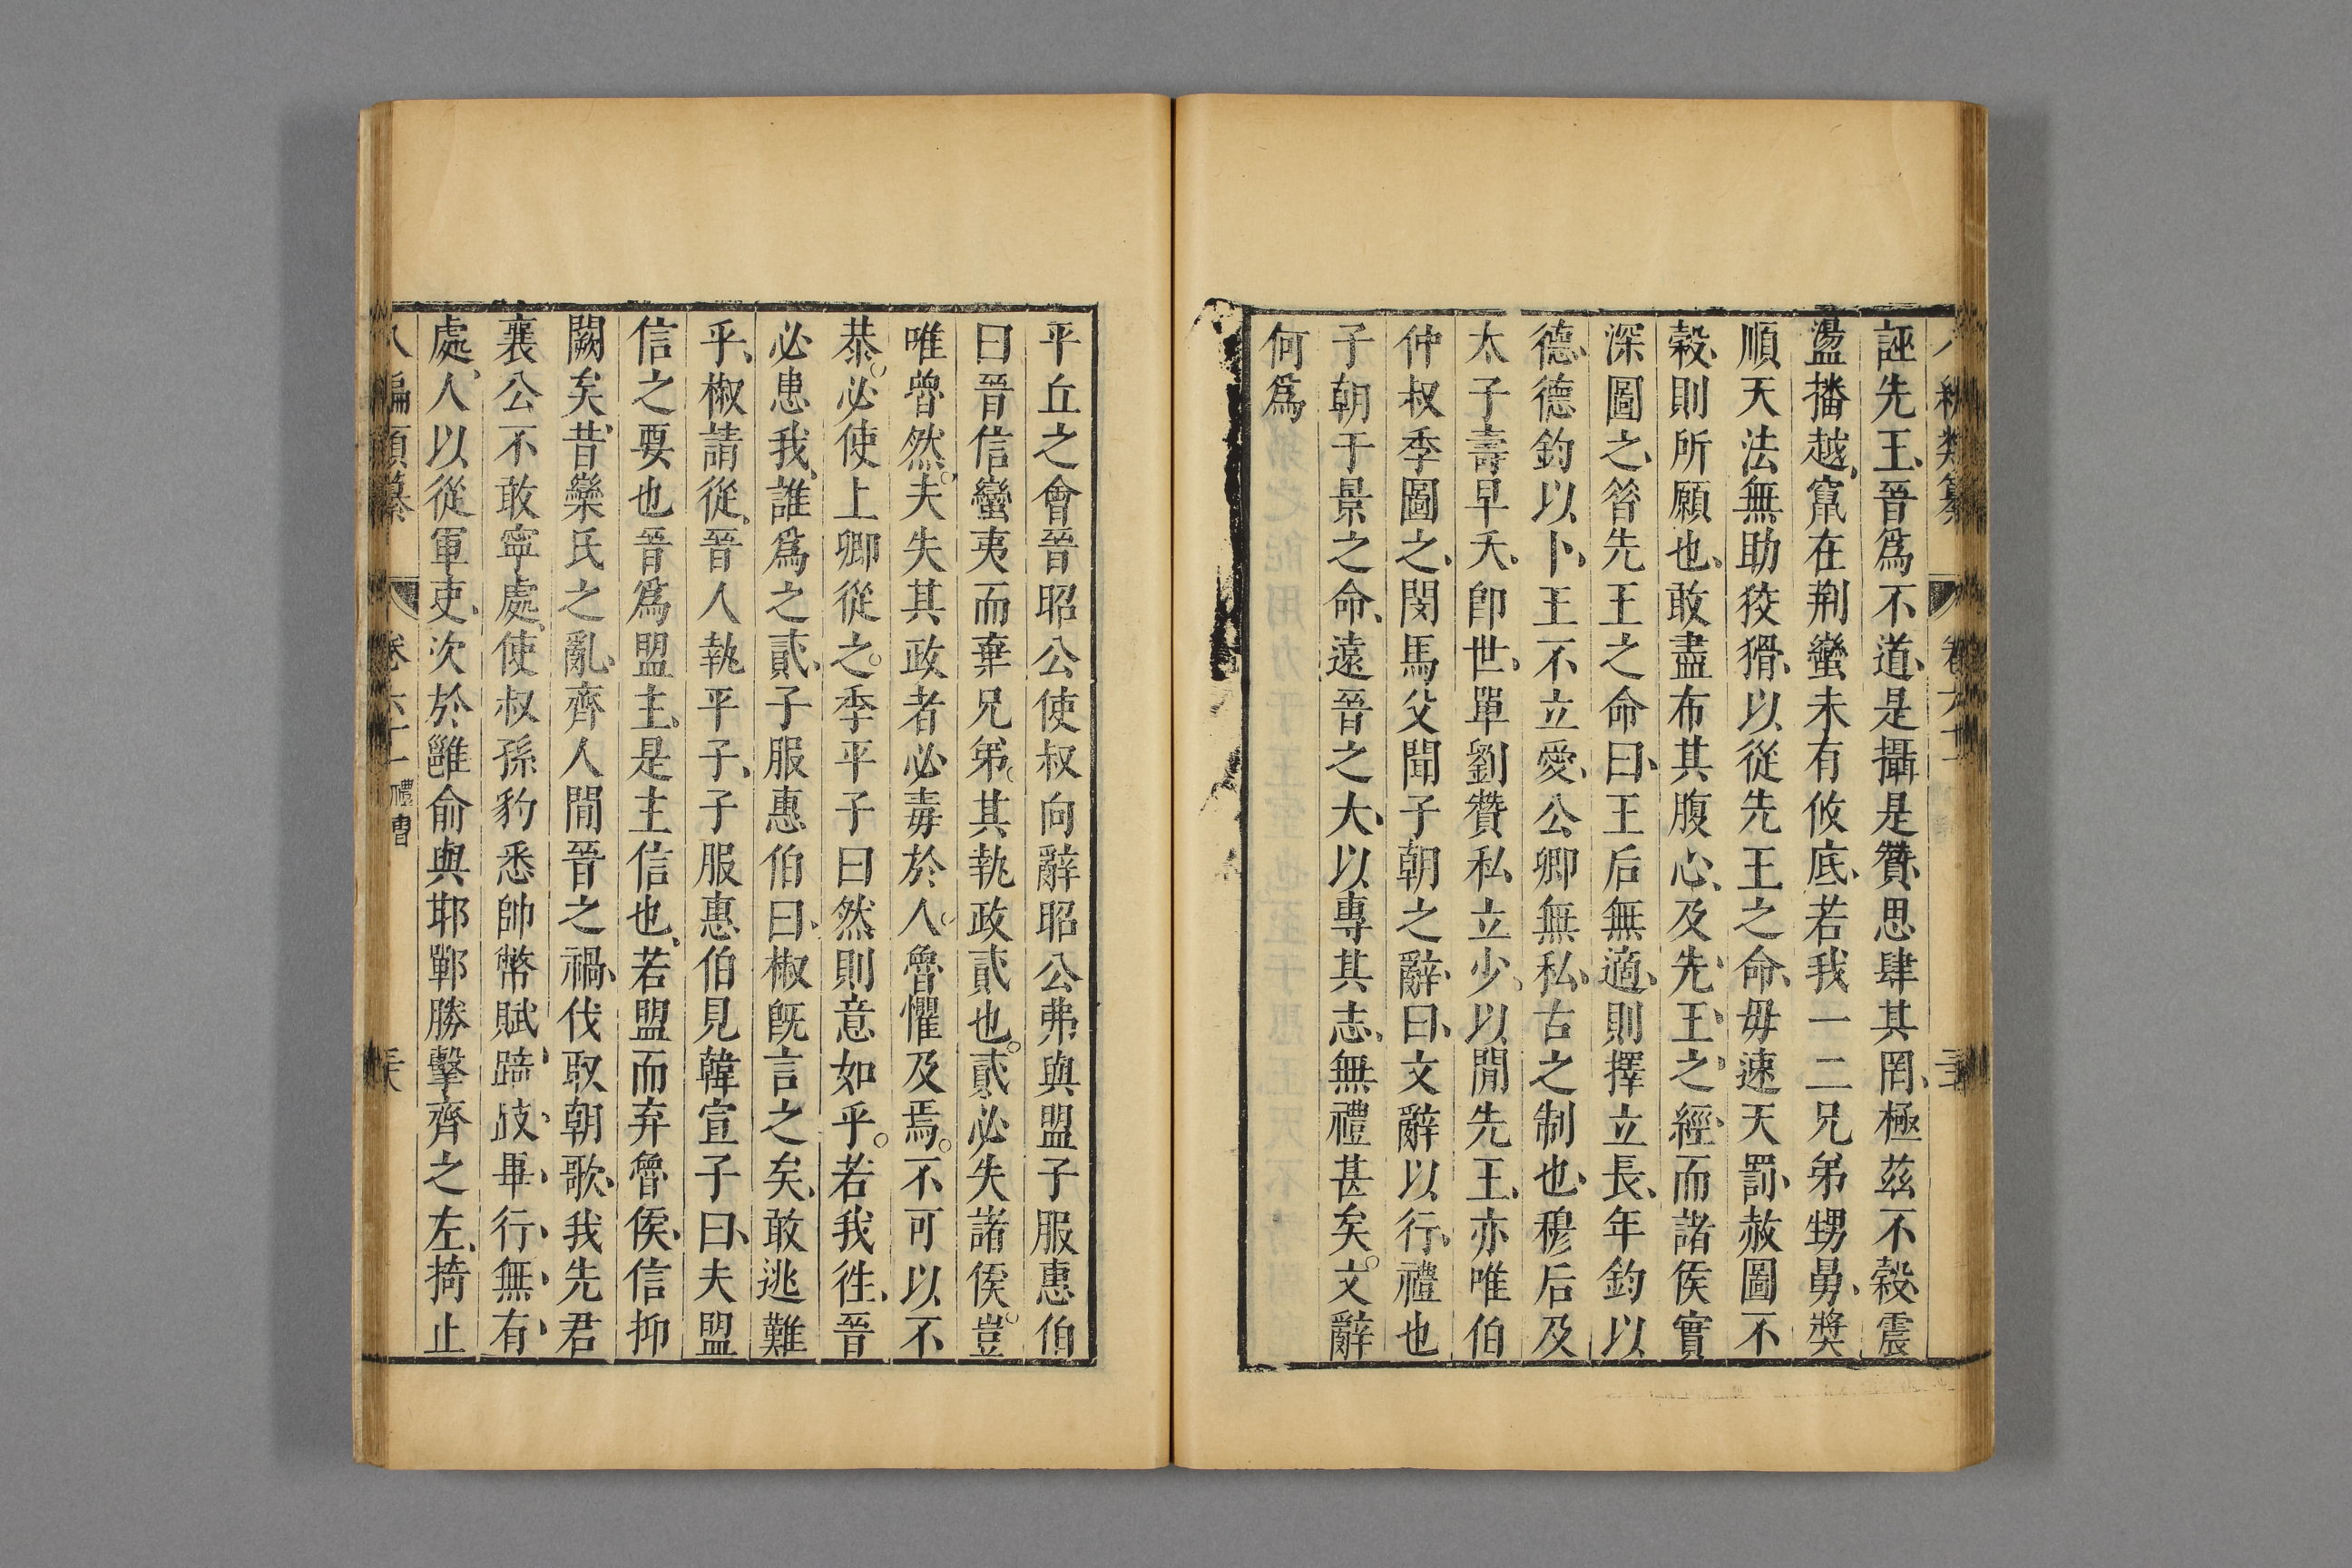 誣先王晉爲不道是攝是贊思肆其罔極茲不穀震
盪播越竄在荆蠻未有攸底若我一二兄弟甥舅奬
順天法無助狡猾以從先王之命毋速天罰赦圖不
穀則所願也敢盡布其腹心及先王之經而諸侯實
深圖之昝先王之命曰王后無適則擇立長年鈞以
德德鈞以卜王不立愛公卿無私古之制也穆后及
太子壽早夭卽世單劉贊私立少以閒先王亦唯伯
仲叔季圖之閔馬父聞子朝之辭曰文辭以行禮也
子朝干景之命遠晉之大以專其志無禮甚矣文辭
何爲
平丘之會晉昭公使叔向辭昭公弗與盟子服惠伯
曰晉信蠻夷而棄兄弟其執政貳也貳必失諸侯豈
唯魯然夫失其政者必毒於人魯懼及焉不可以不
恭必使上卿從之季平子曰然則意如乎若我徃晉
必患我誰爲之貳子服惠伯曰椒旣言之矣敢逃難
乎椒請從晉人執平子子服惠伯見韓宣子曰夫盟
信之要也晉爲盟主是主信也若盟而弃魯侯信抑
闕矣昔欒氏之亂齊人間晉之禍伐取朝歌我先君
襄公不敢寧處使叔孫豹悉帥幣賦踦跂畢行無有
處人以從軍吏次於雝俞與邯鄲勝擊齊之左掎止
八編類纂 卷六十一 禮曹